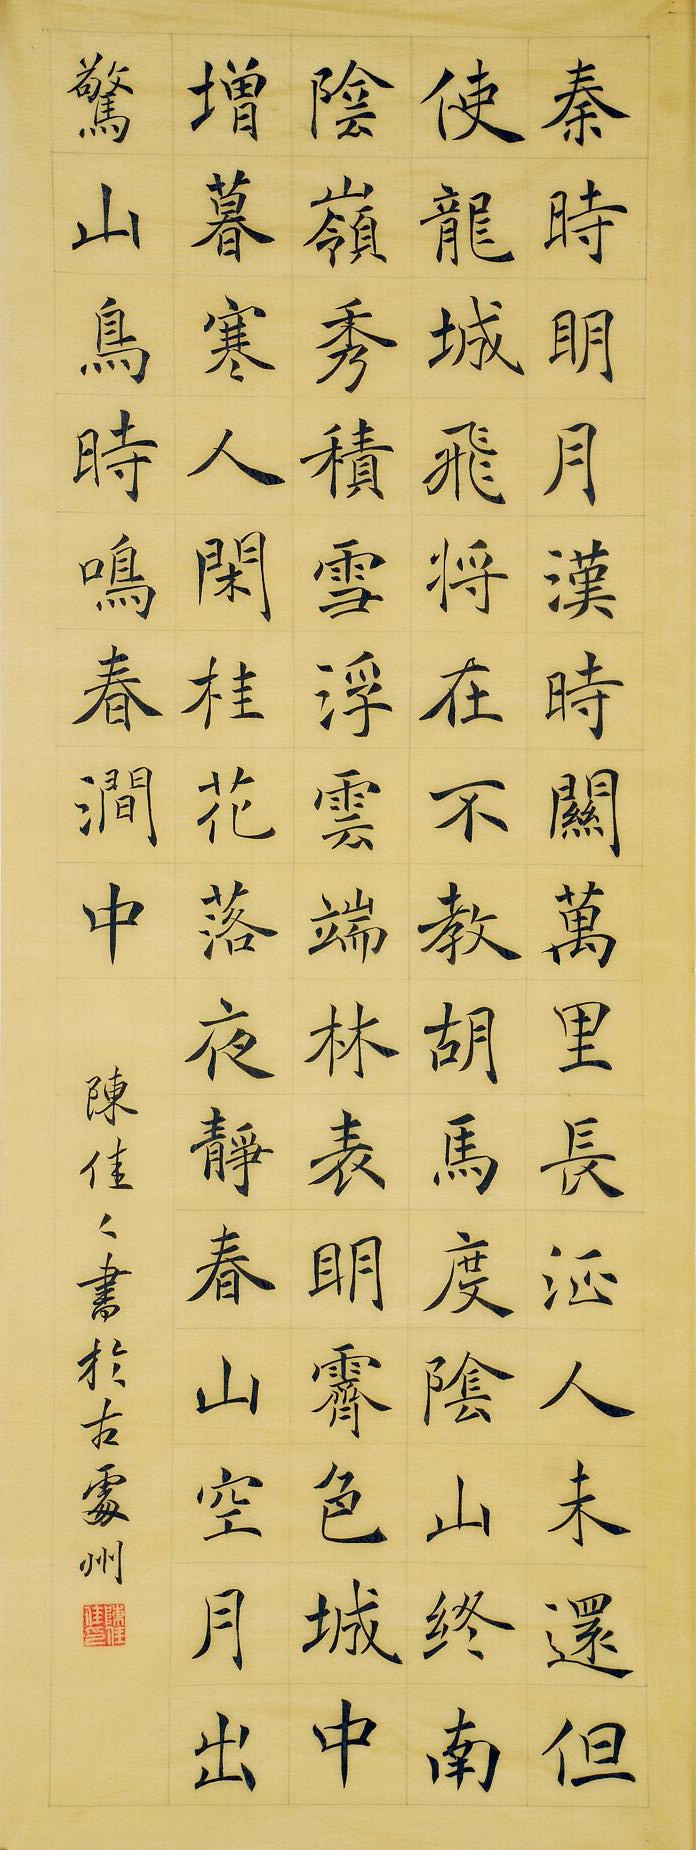 秦時明月漢時關萬里長征人未還但
使龍城飛将在不教胡馬度陰山终南
陰嶺秀積雪浮雲端林表明霽色城中
增暮寒人閑桂花落夜靜春山空月出
驚山鳥時鳴春澗中
陳佳々書於古處州
陳佳佳印